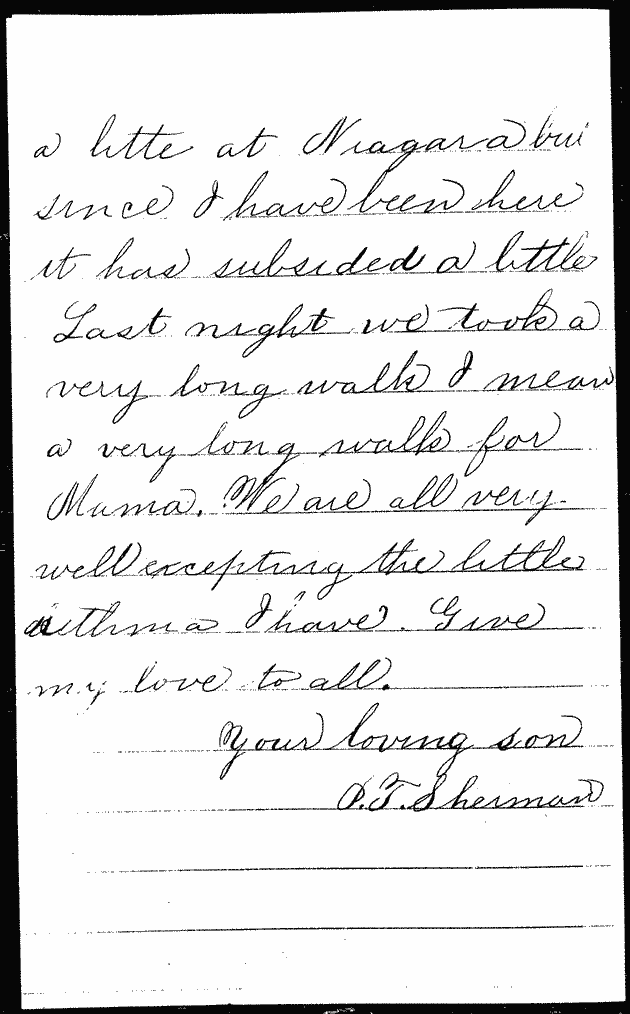 a litte at Niagara but
since I have been here
it has subsided a little
Last night we took a
very long walk I mean
a very long walk for
Mama. We are all very
well excepting the little
asthma I have. Give
my love to all.
Your loving son
P.T. Sherman